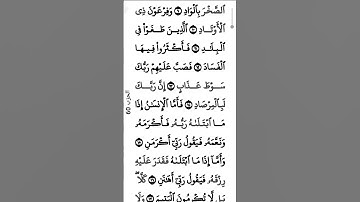 ٱلصَّخْرَ بِٱلْوَادِ ۝ وَفِرْعَوْنَ ذِى
ٱلْأَوْتَادِ ۝ ٱلَّذِينَ طَغَوْا۟ فِى
ٱلْبِلَٰدِ ۝ فَأَكْثَرُوا۟ فِيهَا
ٱلْفَسَادَ ۝ فَصَبَّ عَلَيْهِمْ رَبُّكَ
سَوْطَ عَذَابٍ ۝ إِنَّ رَبَّكَ
لَبِٱلْمِرْصَادِ ۝ فَأَمَّا ٱلْإِنسَٰنُ إِذَا
مَا ٱبْتَلَىٰهُ رَبُّهُۥ فَأَكْرَمَهُۥ
وَنَعَّمَهُۥ فَيَقُولُ رَبِّىٓ أَكْرَمَنِ ۝
وَأَمَّآ إِذَا مَا ٱبْتَلَىٰهُ فَقَدَرَ عَلَيْهِ
رِزْقَهُۥ فَيَقُولُ رَبِّىٓ أَهَٰنَنِ ۝ كَلَّا ۖ
بَل لَّا تُكْرِمُونَ ٱلْيَتِيمَ ۝ وَلَا
الحزب 60